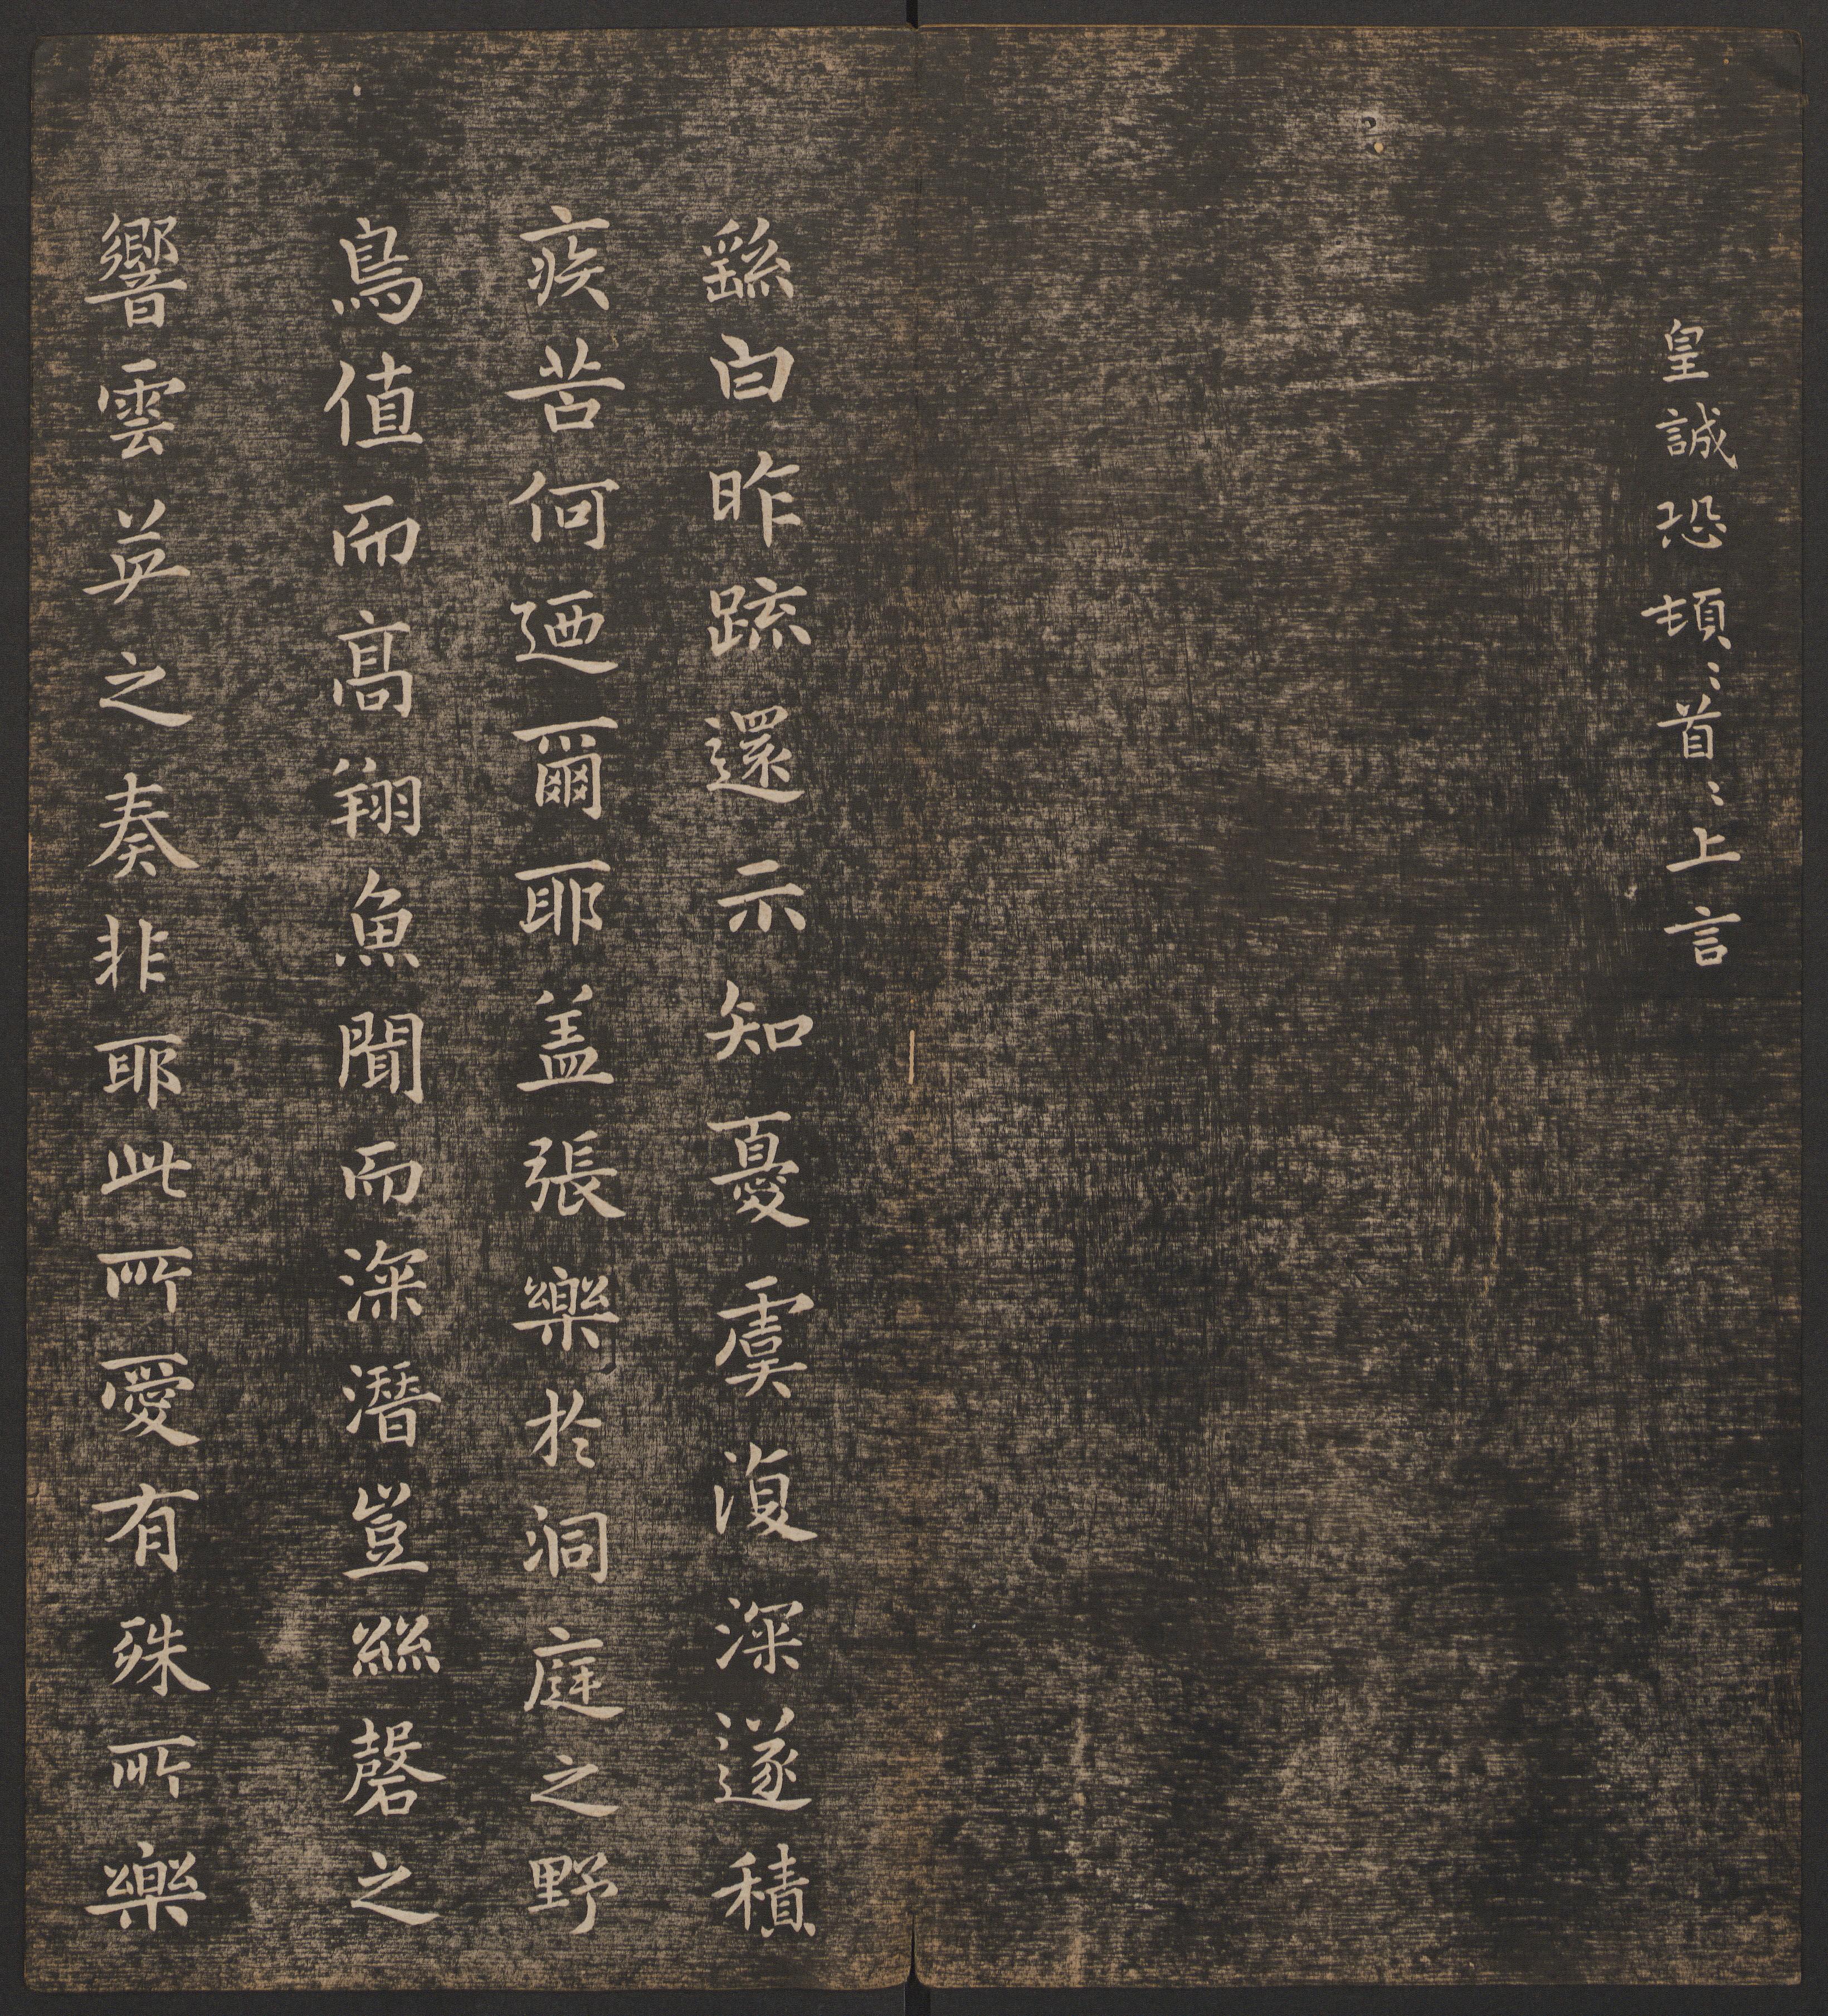 皇誠恐頓〻首〻上言
繇白昨疏還示知憂虞復深遂積
疾苦何迺爾耶盖張樂於洞庭之野
鳥值而高翔魚聞而深潛豈絲磬之
響雲英之奏非耶此所愛有殊所樂